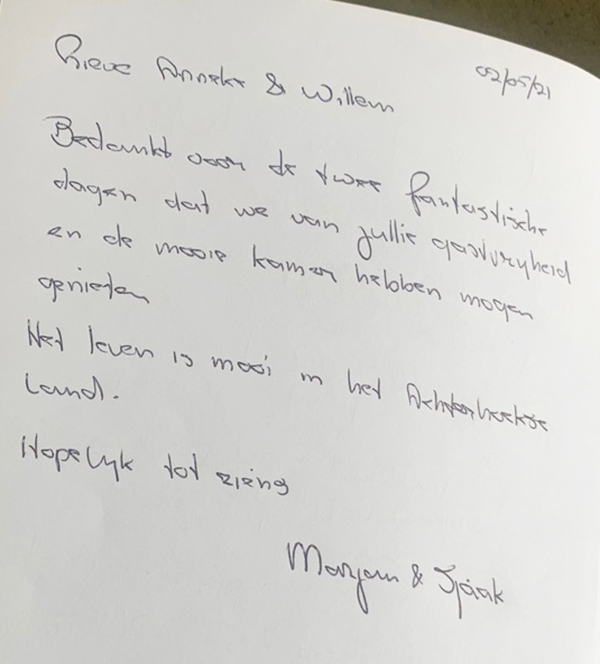 Lieve Anneke & Willem
02/05/21
Bedankt voor de twee fantastische
dagen dat we van jullie gastvryheid
en de mooie kamer hebben mogen
genieten
Het leven is mooi in het Achterhoekse
Land.
Hopelyk tot ziens
Marjan & Sjaak